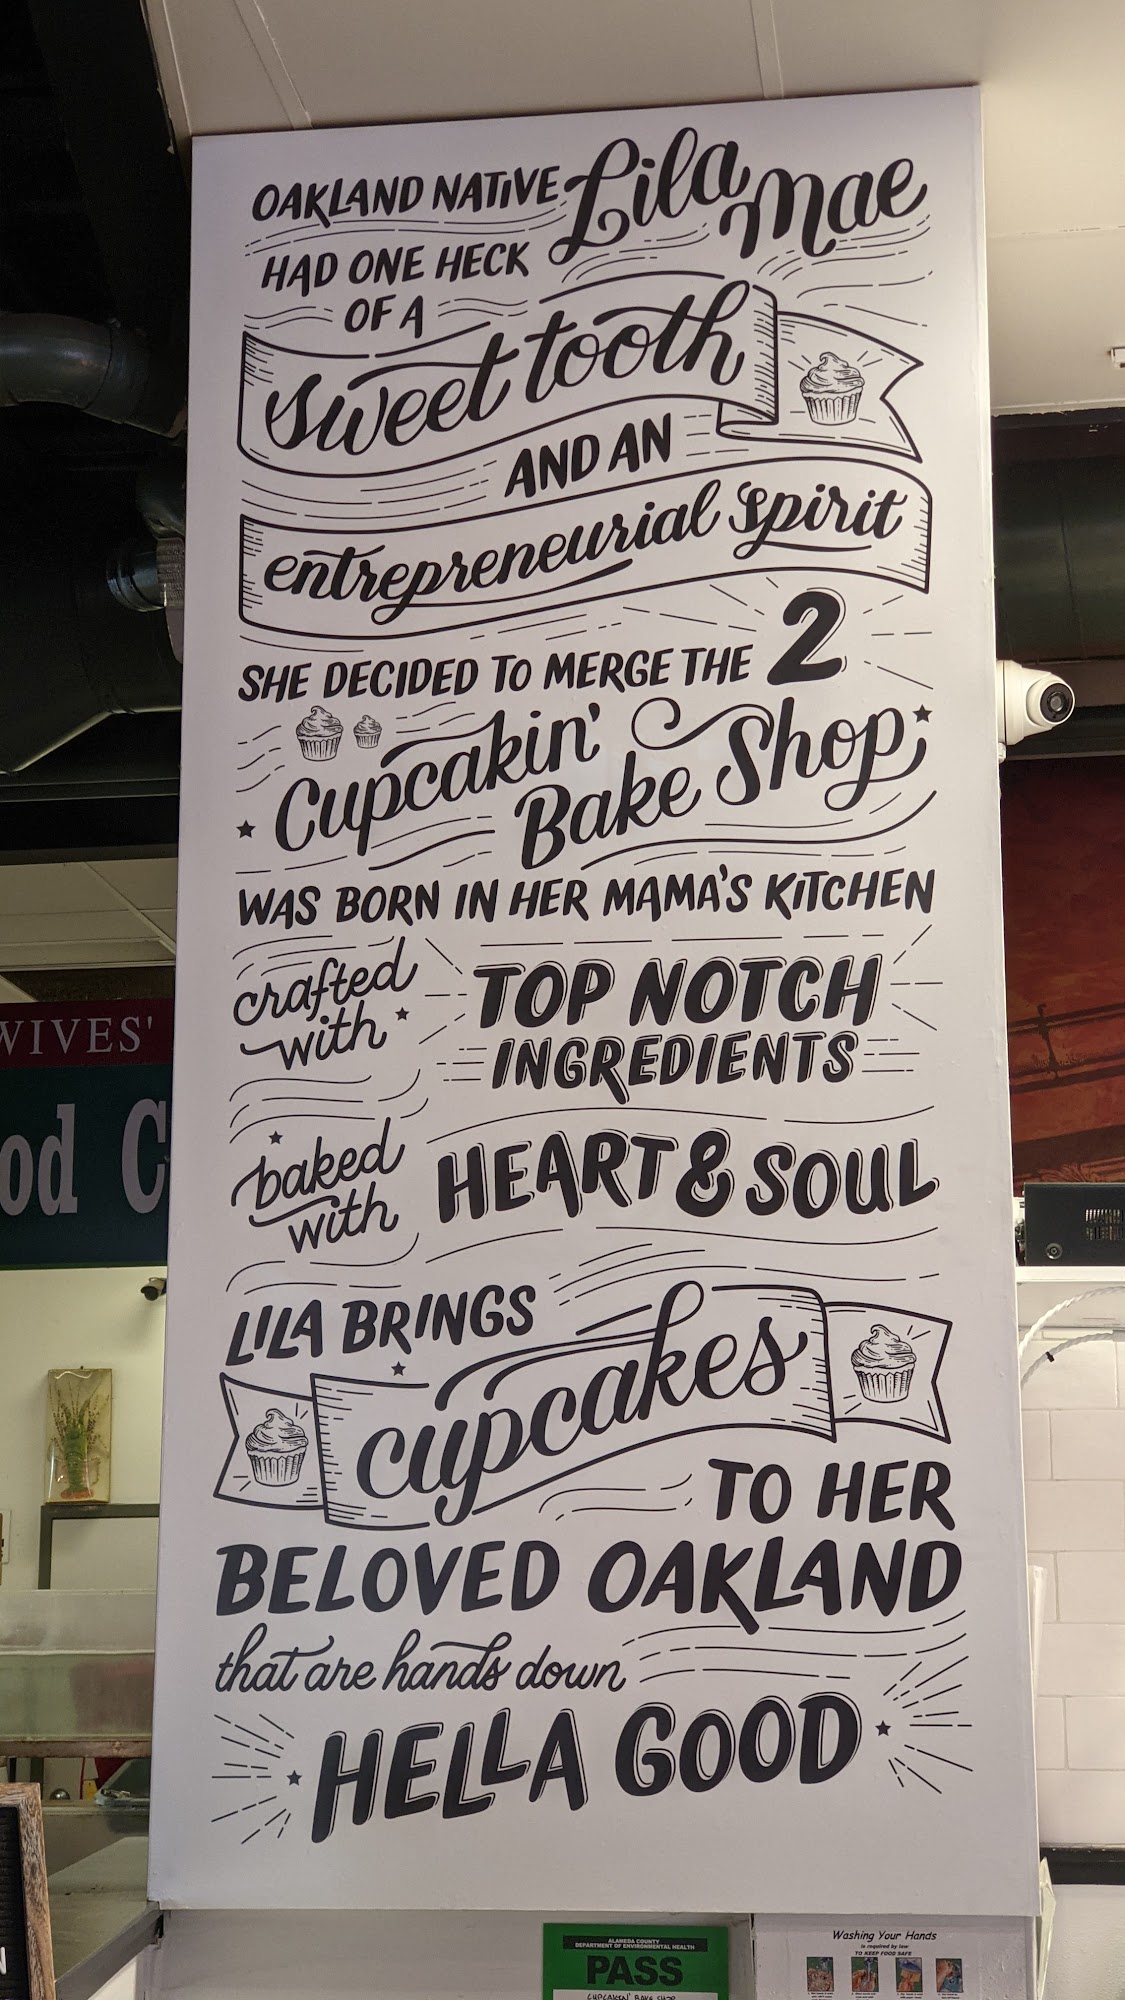 OAKLAND NATIVE Lila Mae
HAD ONE HECK
OF A
sweet tooth
AND AN
entrepreneurial spirit
SHE DECIDED TO MERGE THE 2
Cupcakin'
Bake Shop
WAS BORN IN HER MAMA'S KITCHEN
crafted
with
TOP NOTCH
INGREDIENTS
baked
with
HEART & SOUL
LILA BRINGS
cupcakes
TO HER
BELOVED OAKLAND
that are hands down
HELLA GOOD
WIVES'
od C
ALAMEDA COUNTY
DEPARTMENT OF ENVIRONMENTAL HEALTH
PASS
CUPCAKIN' BAKE SHOP
Washing Your Hands
is required by law
TO KEEP FOOD SAFE
N